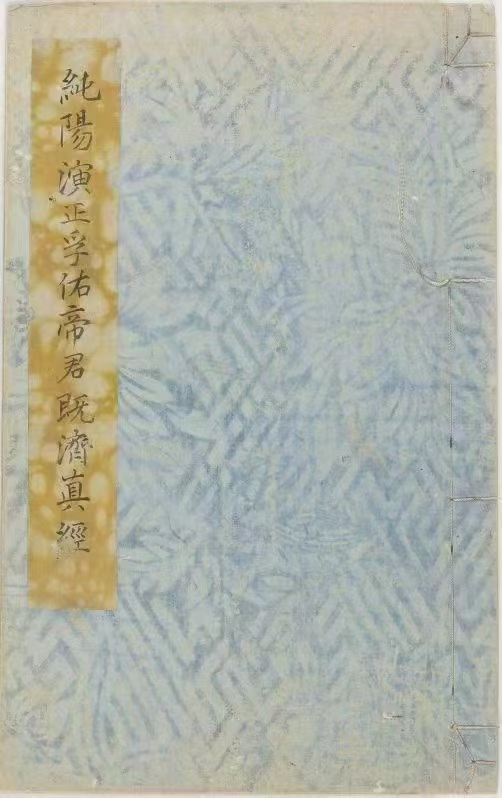 純陽演正孚佑帝君既濟真經